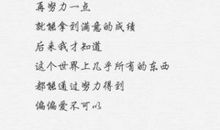 再努力一点
就能拿到满意的成绩
后来我才知道
这个世界上几乎所有的东西
都能通过努力得到
偏偏爱不可以